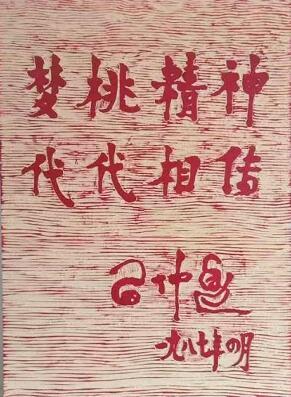 梦桃精神
代代相传
一九八七年四月